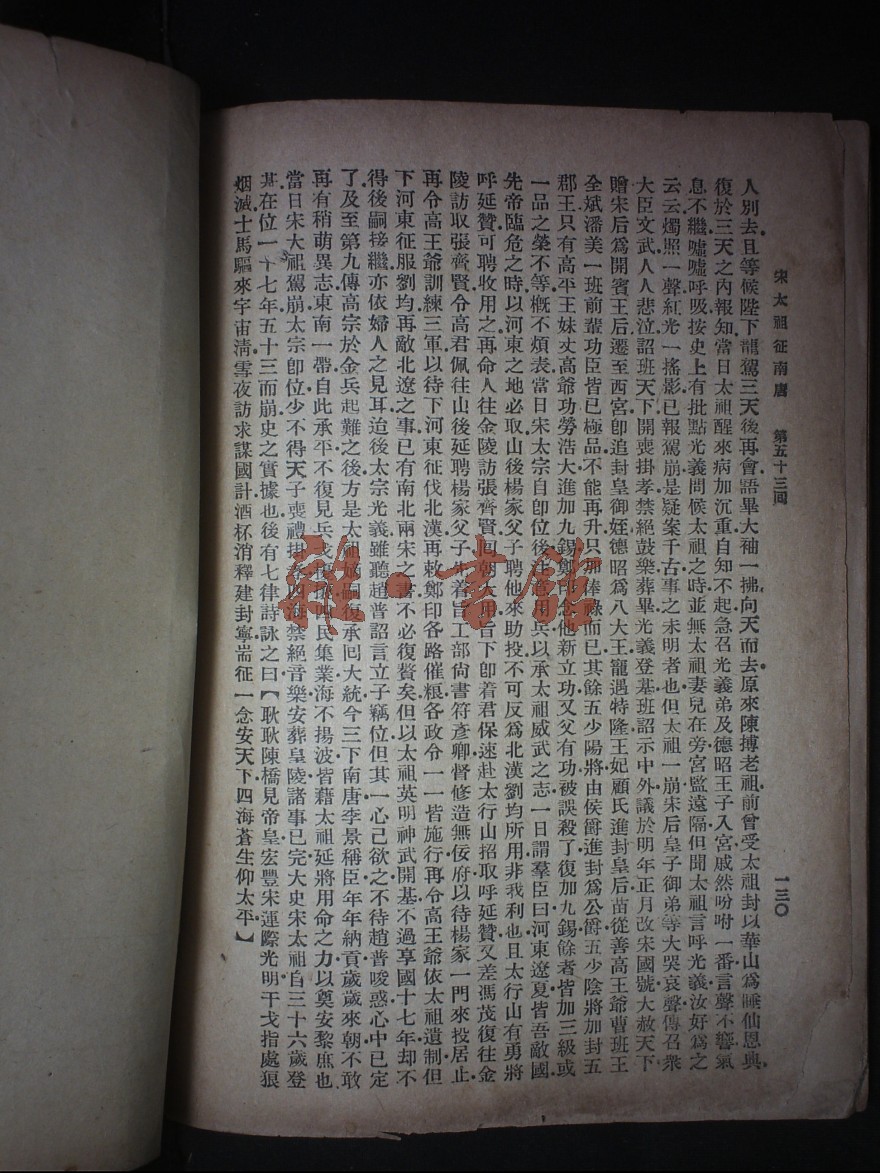 宋太祖征南唐　第五十三回　一三〇
人別去且等候陛下龍駕三天後再會語畢大袖一拂向天而去原來陳摶老祖前曾受太祖封以華山爲睡仙恩典
復於三天之內報知當日太祖醒來病加沉重自知不起急召光義弟及德昭王子入宮戚然吩咐一番言聲不響氣
息不繼噓噓呼吸按史上有批點光義問候太祖之時並無太祖妻兒在旁宮監遠隔但聞太祖言呼光義汝好爲之
云云燭照一聲紅光一搖影已報駕崩是疑案千古事之未明者也但太祖一崩宋后皇子御弟等大哭哀聲傳召衆
大臣文武人人悲泣詔班天下開喪掛孝禁絕鼓樂葬畢光義登基班詔示中外議於明年正月改宋國號大赦天下
贈宋后爲開賓王后遷至西宮卽追封皇御姪德昭爲八大王寵遇特隆王妃顧氏進封皇后苗從善高王爺曹班王
全斌潘美一班前輩功臣皆已極品不能再升只加俸祿而已其餘五少陽將由侯爵進封爲公爵五少陰將加封五
郡王只有高平王妹丈高爺功勞浩大進加九錫鄭印念他新立功又父有功被誤殺了復加九錫餘者皆加三級或
一品之榮不等槪不煩表當日宋太宗自卽位後注意用兵以承太祖威武之志一日謂羣臣曰河東遼夏皆吾敵國
先帝臨危之時以河東之地必取山後楊家父子聘他來助投不可反爲北漢劉均所用非我利也且太行山有勇將
呼延贊可聘收用之再命人往金陵訪張齊賢回朝大用旨下卽着君保速赴太行山招取呼延贊又差馮茂復往金
陵訪取張齊賢令高君佩往山後延聘楊家父子先着旨工部尙書符彥卿督修造無佞府以待楊家一門來投居止
再令高王爺訓練三軍以待下河東征伐北漢再敕鄭印各路催糧各政令一一皆施行再令高王爺依太祖遺制但
下河東征服劉均再敵北遼之事已有南北兩宋之書不必復贅矣但以太祖英明神武開基不過享國十七年却不
得後嗣接繼亦依婦人之見耳迨後太宗光義雖聽趙普詔言立子竊位但其一心己欲之不待趙普唆惑心中已定
了及至第九傳高宗於金兵起難之後方是太祖嫡嗣復承回大統今三下南唐李景稱臣年年納貢歲歲來朝不敢
再有稍萌異志東南一帶自此承平不復見兵戈擾攘民集業海不揚波皆藉太祖延將用命之力以奠安黎庶也
當日宋大祖駕崩太宗卽位少不得天子喪禮掛孝四海禁絕音樂安葬皇陵諸事已完大史宋太祖自三十六歲登
基在位一十七年五十三而崩史之實據也後有七律詩詠之曰【耿耿陳橋見帝皇宏豐宋運際光明干戈指處狼
烟滅士馬驅來宇宙淸雪夜訪求謀國計酒杯消釋建封寧耑征一念安天下四海蒼生仰太平】
雜·書館